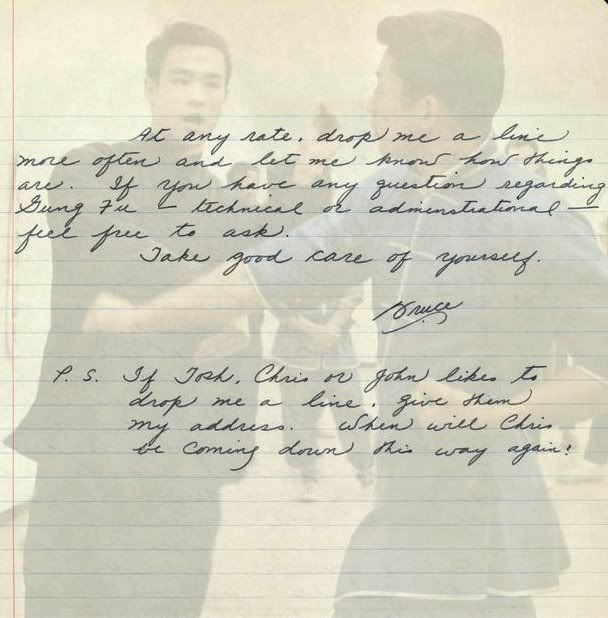 At any rate, drop me a line
more often and let me know how things
are. If you have any question regarding
Gung Fu — technical or adminstrational —
feel free to ask.
Take good care of yourself.
Bruce
P. S. If Tosh, Chris or John likes to
drop me a line, give them
my address. When will Chris
be coming down this way again?